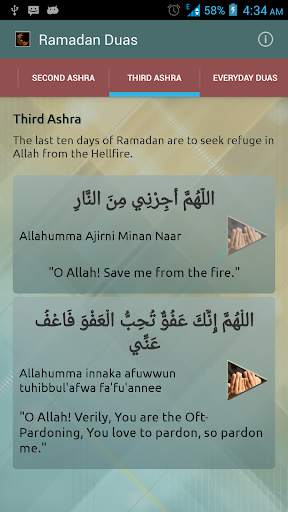 58% 4:34 AM
Ramadan Duas
SECOND ASHRA THIRD ASHRA EVERYDAY DUAS
Third Ashra
The last ten days of Ramadan are to seek refuge in
Allah from the Hellfire.
اللّهُمَّ أجِرْنِي مِنَ النَّارِ
Allahumma Ajirni Minan Naar
"O Allah! Save me from the fire."
اللّهُمَّ إِنَّكَ عَفُوٌّ تُحِبُّ الْعَفْوَ فَاعْفُ
عَنِّي
Allahumma innaka afuwwun
tuhibbul'afwa fa'fu'annee
"O Allah! Verily, You are the Oft-
Pardoning, You love to pardon, so pardon
me."